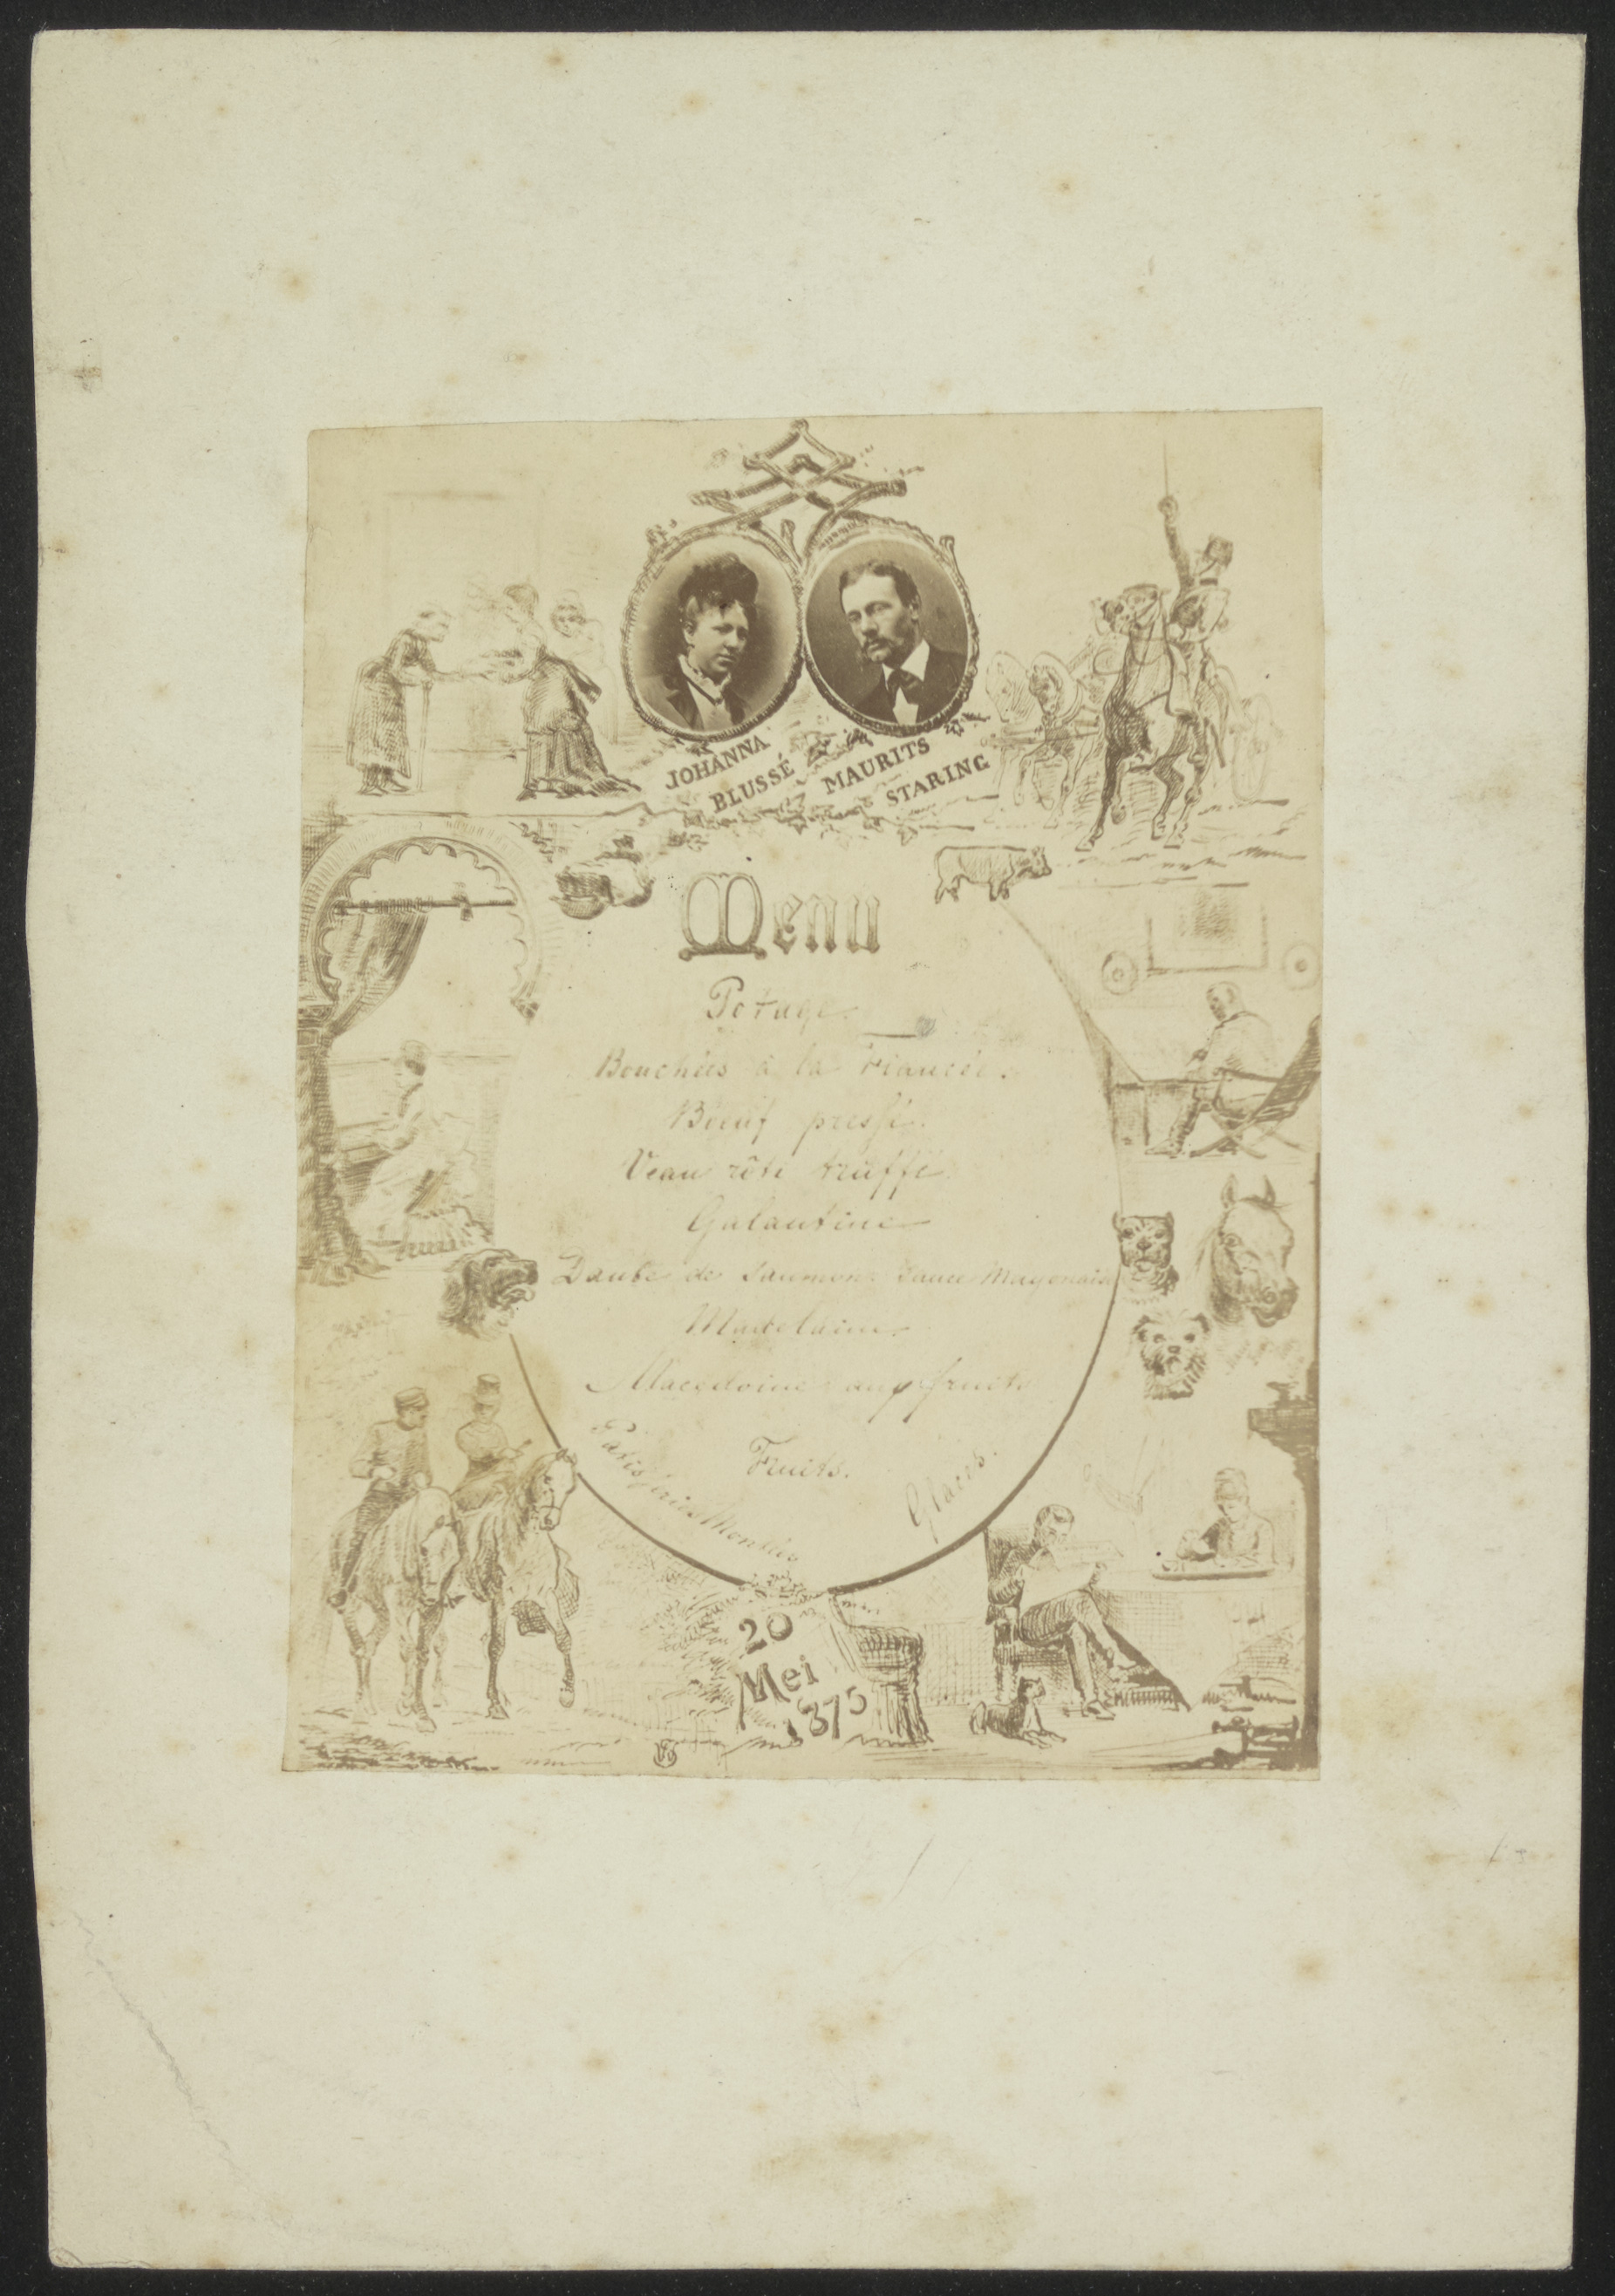 JOHANNA
BLUSSÉ
MAURITS
STARING
Menu
Potage.
Bouchées à la Fiancée.
Bœuf pressé.
Veau rôti truffé
Galantine
Daube de Saumon Sauce Mayonaise
Madelaine
Macedoine aux fruits
Patisseries Montées
Fruits.
Glaces.
20
Mei
1875